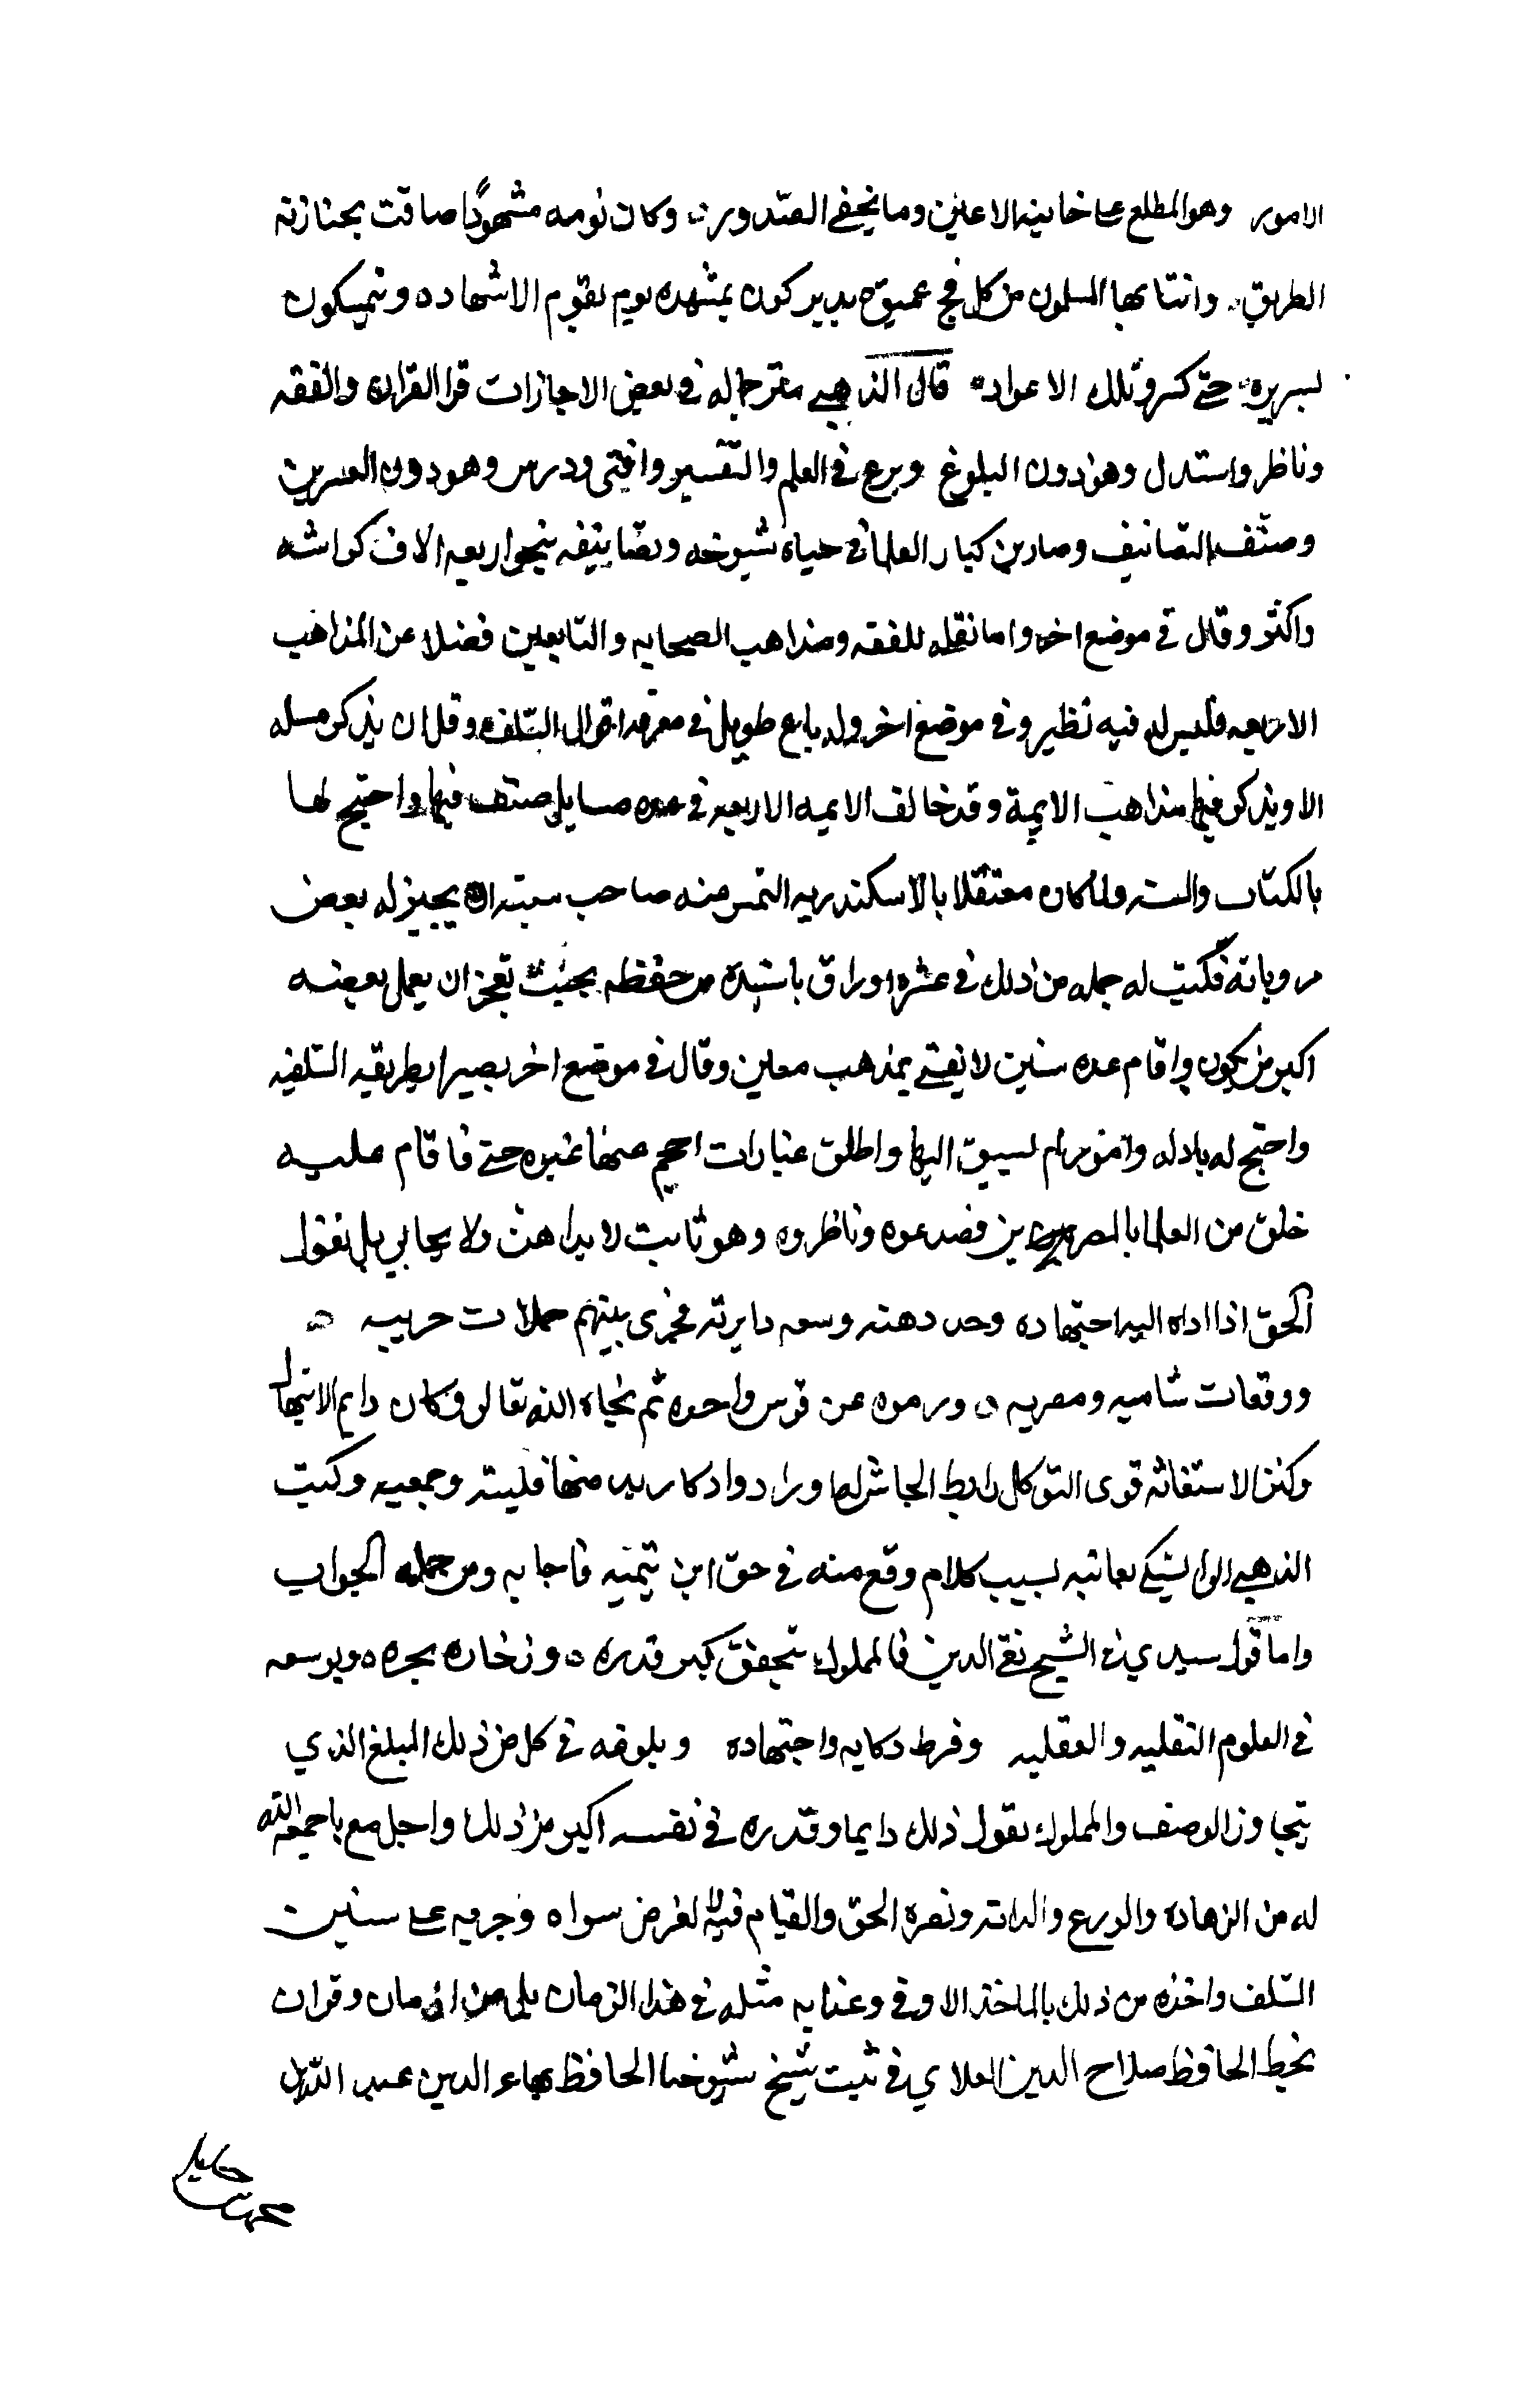 الامور وهو المطلع على خاينه الاعين وما تخفي الصدور وكان يومه مشهودًا ضاقت بجنازته
الطريق وانتابها المسلمون من كل فج عميق يتبركون بمشهده يوم يقوم الاشهاد ويتمسكون
لسريره حتى كسروا تلك الاعواد قال الذهبي مترجما له في بعض الاجازات قرا القران والفقه
وناظر واستدل وهو دون البلوغ وبرع في العلم والتفسير وافتى ودرس وهو دون العسرين
وصنّف التصانيف وصار من كبار العلما في حياة شيوخه وتصانيفه نحو اربعه الاف كراسه
واكثر وقال في موضع اخر واما نقله للفقه ومذاهب الصحابه والتابعين فضلا عن المذاهب
الاربعه فليس له فيه نظير وفي موضع اخر وله باع طويل في معرفه اقوال السّلف وقل ان يذكر مسله
الا ويذكر فيها مذاهب الايمة وقد خالف الايمه الاربعه في عده مسايل صنف فيها واحتج لها
بالكتاب والسنه ولما كان معتقلا بالاسكندريه التمس منه صاحب سبته ان يجيز له بعض
مروياته فكتب له جمله من ذلك في عشره اوراق باسنيده من حفظه بحيث تعجز ان يعمل بعضه
اكبر من يكون واقام عده سنين لا يفتي بمذهب معين وقال في موضع اخر بصيرا بطريقه السّلفيه
واحتج له بادله وامور لم يسبق اليها واطلق عبارات احجم عنها غيره حتى قام عليه
خلق من العلما بالمصريين فصدعوه وناظروه وهو ثابت لا يداهن ولا يحابي بل يقول
الحق اذا اداه اليه اجتهاده وحده ذهنه وسعه دايرته فجرى بينهم حملات حربيه
ووقعات شاميه ومصريه ورموه عن قوس واحده ثم نجاه الله تعالى وكان دايم الابتهال
وكثير الاستغاثه قوى التوكل رابط الجاش له اوراد واذكار يدمنها قلبيّه وجمعيه وكتب
الذهبي الى السبكي يعاتبه لسبب كلام وقع منه في حق ابن تيميه فاجابه ومن جمله الجواب
وامّا قول سيدي في الشيخ تقي الدين فالمملوك يتحقق كبر قدره وزخاره بحره وتوسعه
في العلوم النقليه والعقليه وفرط ذكايه واجتهاده وبلوغه في كل من ذلك المبلغ الذي
يتجاوز الوصف والمملوك يقول ذلك دايما وقدره في نفسه اكبر من ذلك واجل مع ما جمعه الله
له من الزهادة والورع والديانه ونصره الحق والقيام فيه لا لغرض سواه وجريه على سنن
السّلف واخذه من ذلك بالماخذ الاوفى وغرابه مثله في هذا الزمان بلى من ازمان وقرات
بخط الحافظ صلاح الدين العلاي في ثبت شيخ شيوخنا الحافظ بهاء الدين عبد الله بن